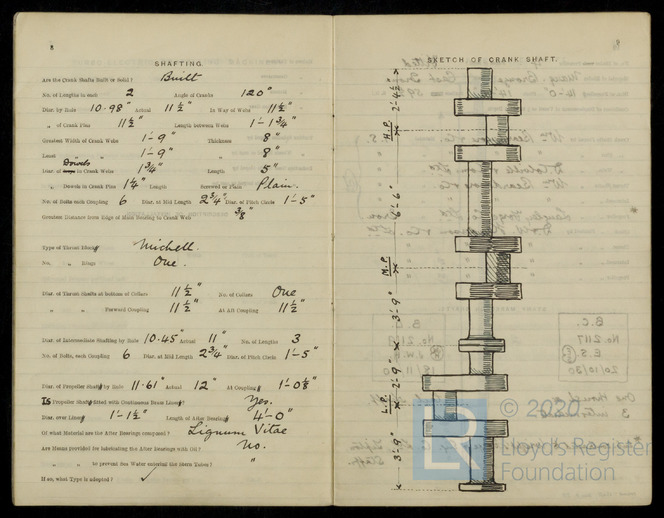 8
SHAFTING.
Are the Crank Shafts Built or Solid? Built
No. of Lengths in each 2 Angle of Cranks 120°
Diar. by Rule 10.98" Actual 11½" In Way of Webs 11½"
„ of Crank Pins 11½" Length between Webs 1'-1¾"
Greatest Width of Crank Webs 1'-9" Thickness 8"
Least „ „ 1'-9" „ 8"
Diar. of Dowels 1¾" Length 5"
„ Dowels in Crank Pins 1¼" Length Screwed or Plain Plain.
No. of Bolts each Coupling 6 Diar. at Mid Length 2¾" Diar. of Pitch Circle 1'-5"
Greatest Distance from Edge of Main Bearing to Crank Web 3/8"
Type of Thrust Block Michell.
No. „ Rings One.
Diar. of Thrust Shafts at bottom of Collars 11½" No. of Collars One
„ „ Forward Coupling 11½" At Aft Coupling 11½"
Diar. of Intermediate Shafting by Rule 10.45" Actual 11" No. of Lengths 3
No. of Bolts, each Coupling 6 Diar. at Mid Length 2¾" Diar. of Pitch Circle 1'-5"
Diar. of Propeller Shaft by Rule 11.61" Actual 12" At Coupling 1'-0⅝"
Is Propeller Shaft fitted with Continuous Brass Liner? Yes.
Diar. over Liner 1'-1½" Length of After Bearing 4'-0"
Of what Material are the After Bearings composed? Lignum Vitae
Are Means provided for lubricating the After Bearings with Oil? No.
„ „ to prevent Sea Water entering the Stern Tubes? "
If so, what Type is adopted?
SKETCH OF CRANK SHAFT.
2'-4½"
H.P.
6'-6"
M.P.
3'-9"
2'-9"
L.P.
3'-9"
© 2020
LR
Lloyd's Register
Foundation